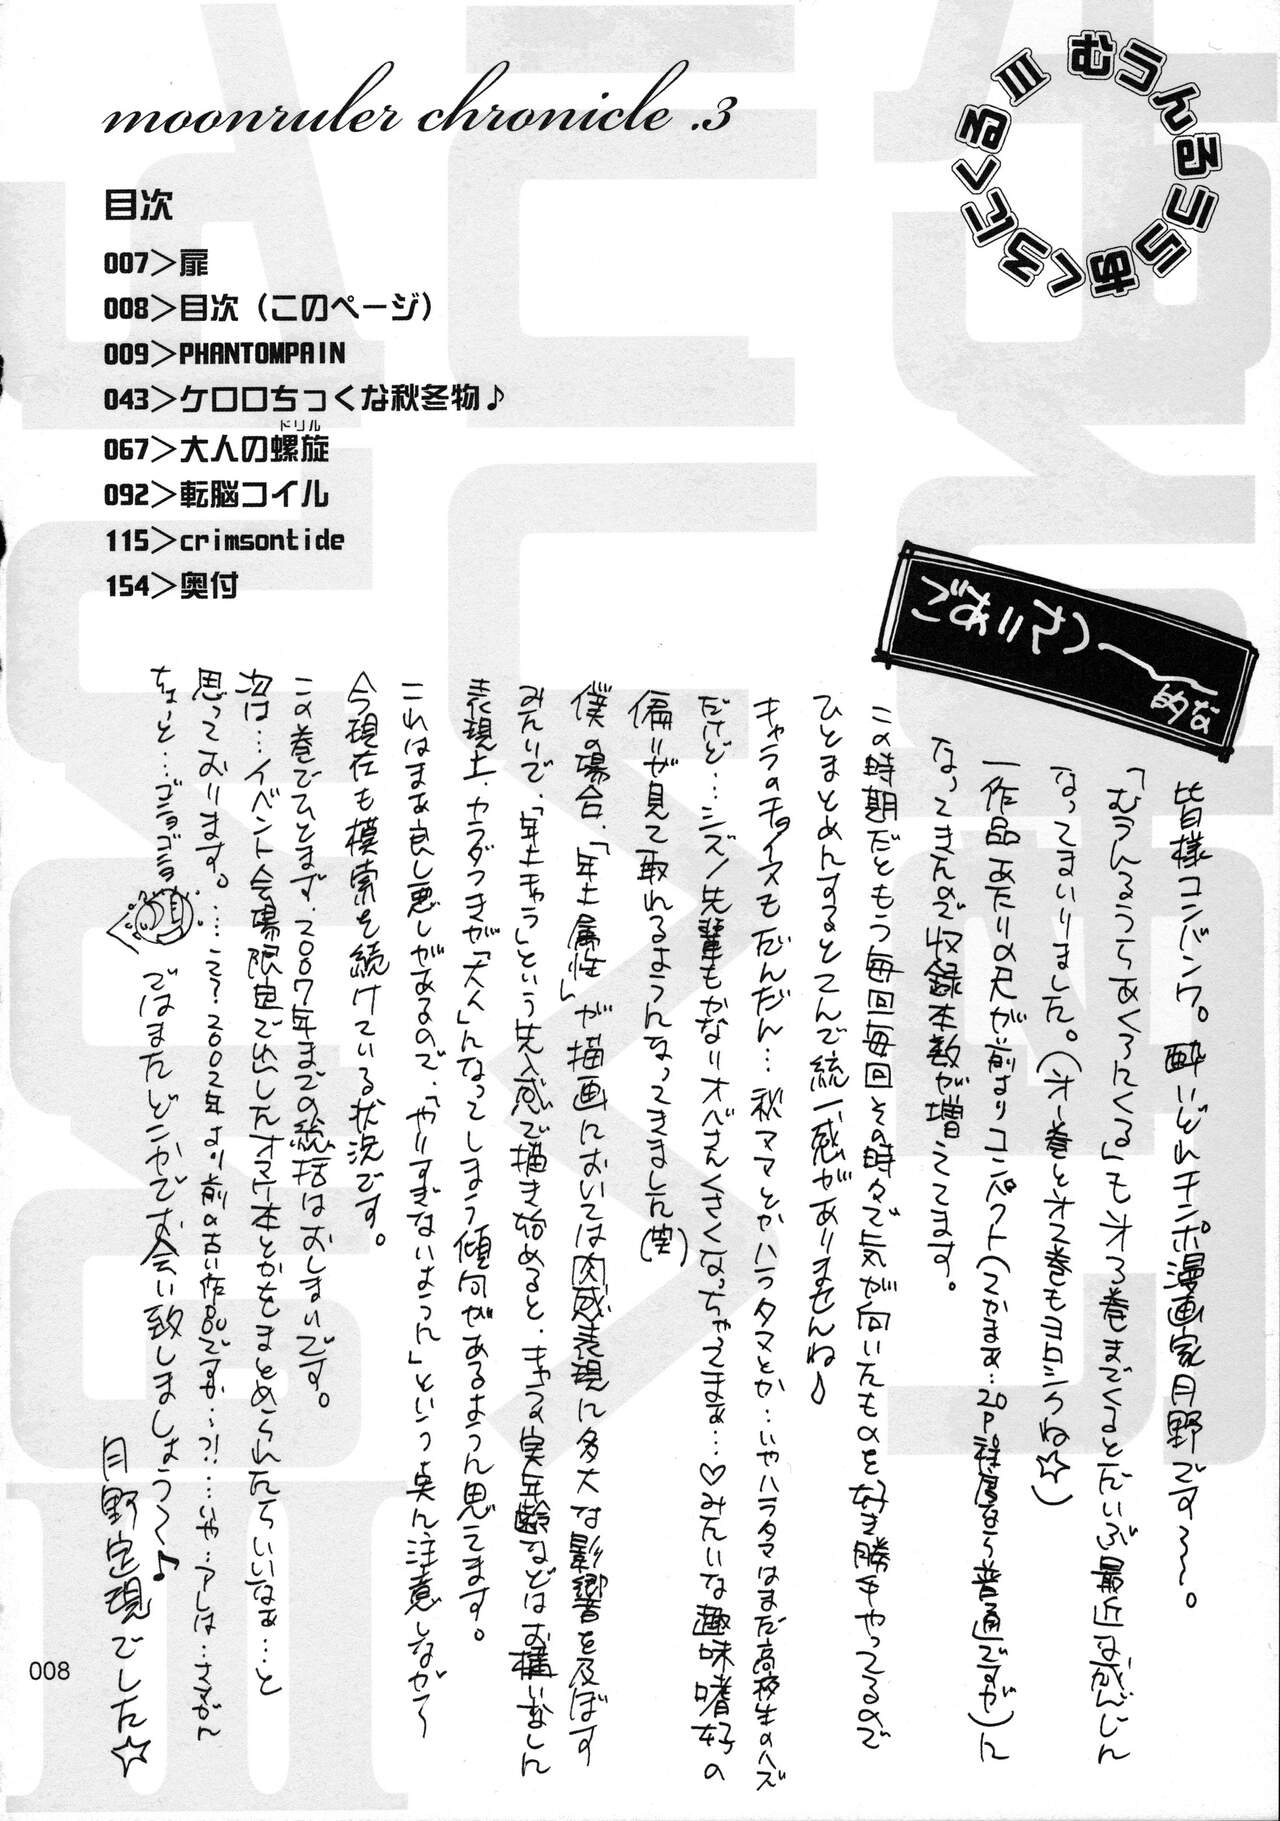 moonruler chronicle .3
むうんるうらあくろにくる Ⅲ
目次
007>扉
008>目次（このページ）
009>PHANTOMPAIN
043>ケロロちっくな秋冬物♪
067>大人の螺旋
ドリル
092>転脳コイル
115>crimsontide
154>奥付
ごあいさつ〜的な
皆様コンバンワ。酔いどれチンポ漫画家月野です〜〜。
「むうんるうらあくろにくる」もオ3巻までくるとだいぶ最近なかんじに
なってまいりました。(オ1巻とオ2巻もヨロシクね☆)
一作品あたりの尺が前よりコンパクト(てかまぁ…20P程度なら普通ですが)に
なってきたので収録本数が増えてます。
この時期だともう毎回毎回その時々で気が向いたものを好き勝手やってるので
ひとまとめにするとてんで統一感がありませんね♪
キャラのチョイスもだんだん…秋ママとかハラタマとか…いやハラタマはまだ高校生のハズ
だけど…シズノ先輩もかなりオバさんくさくなっちゃってまぁ…♡みたいな趣味嗜好の
偏りが見て取れるようになってきました(笑)
僕の場合、「年上属性」が描画においては肉感表現に多大な影響を及ぼす
みたいで、「年上キャラ」という先入感で描き始めると、キャラの実年齢などはお構いなしに
表現上、カラダつきが「大人」になってしまう傾向があるように思えてます。
これはまぁ良し悪しがあるので、「やりすぎないように」という点に注意しながら〜
今現在も模索を続けている状況です。
この巻でひとまず、2007年までの総括はおしまいです。
次は…イベント会場限定で出したオマケ本とかをまとめられたらいいなぁ…と
思っております。……え？2002年より前の古い作品ですか…?!…いや…アレは…さすがに
ちょっと…ゴニョゴニョ ではまたどこかでお会い致しましょう〜♪
月野定規でした☆
008